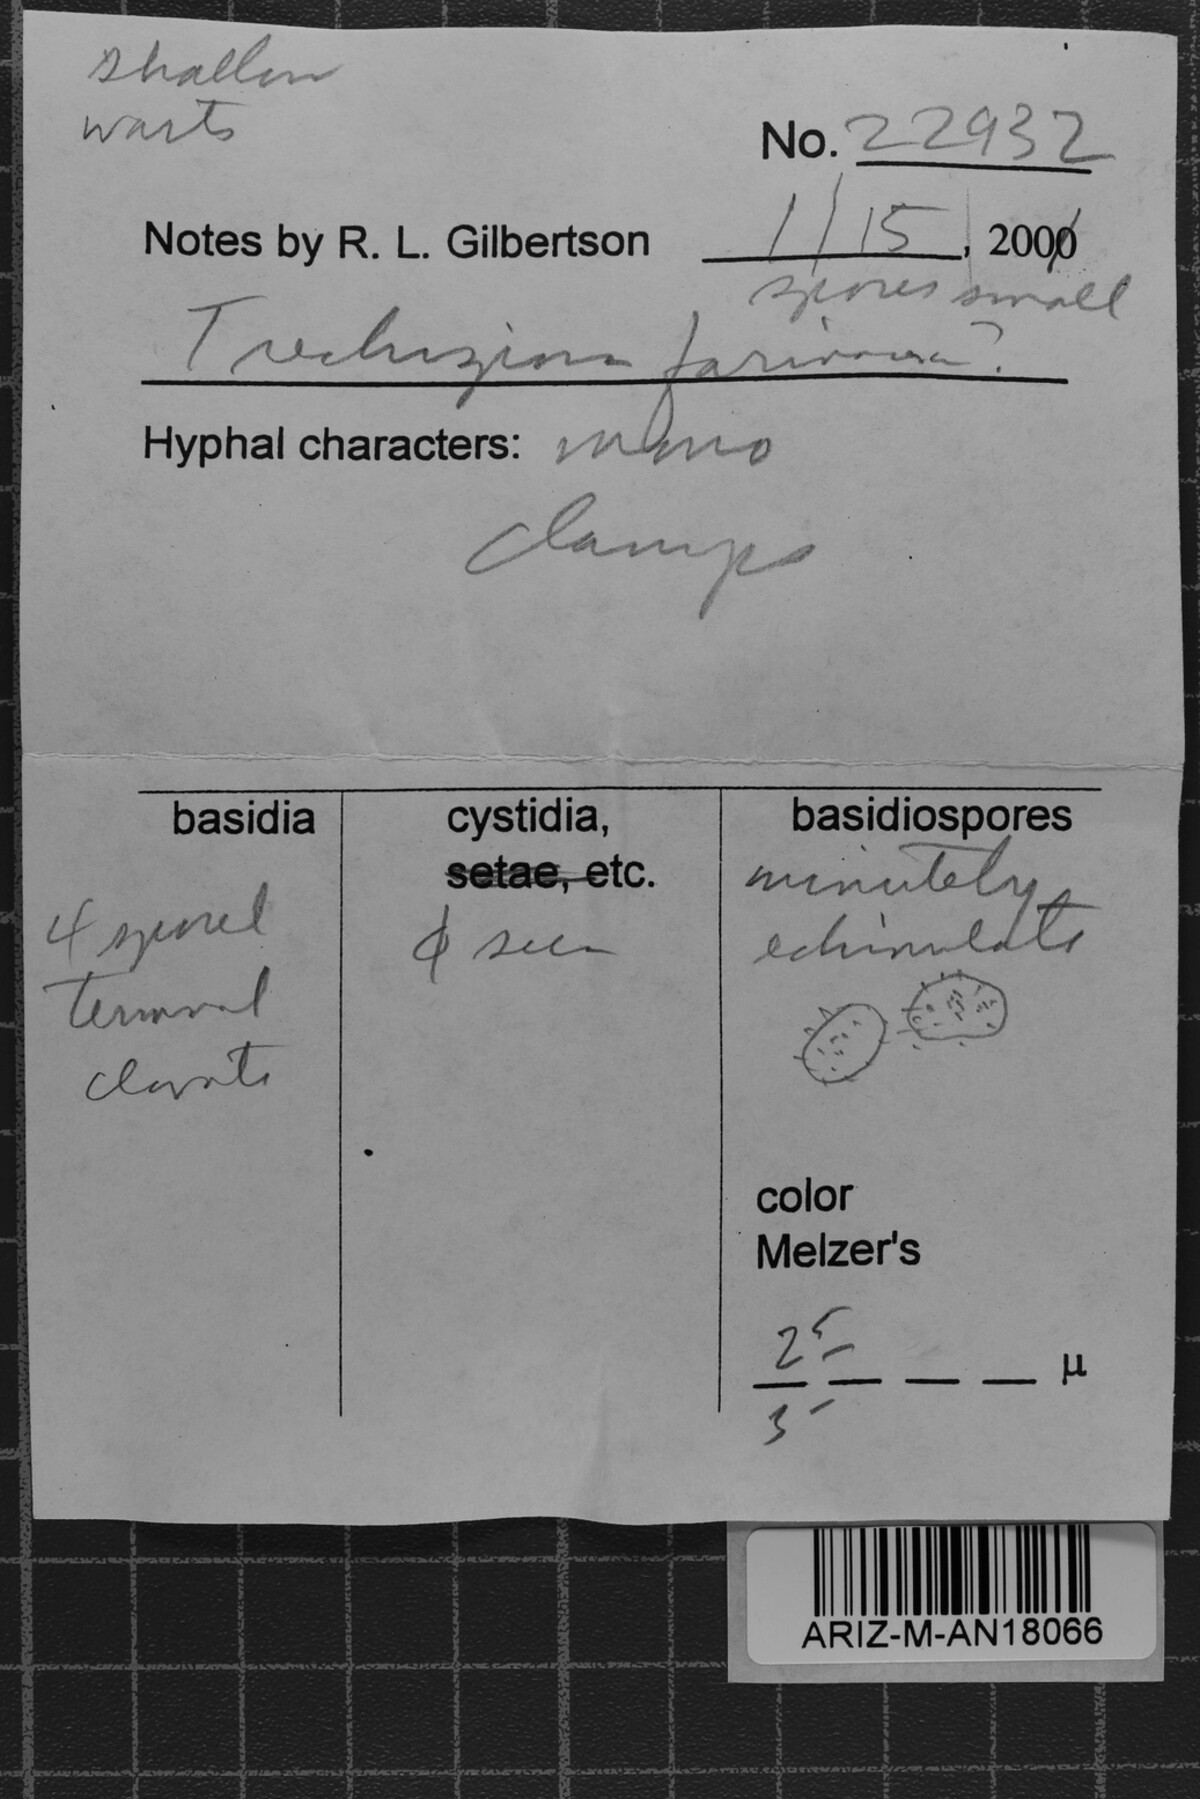 shallow
warts
No. 22932
Notes by R. L. Gilbertson 1/15, 2000
spores small
Trechispora farinacea?
Hyphal characters: mono
clamps
basidia
4 spored
terminal
clavate
cystidia,
setae, etc.
ϕ seen
basidiospores
minutely
echinulate
color
Melzer's
25
— — — — µ
3
ARIZ-M-AN18066